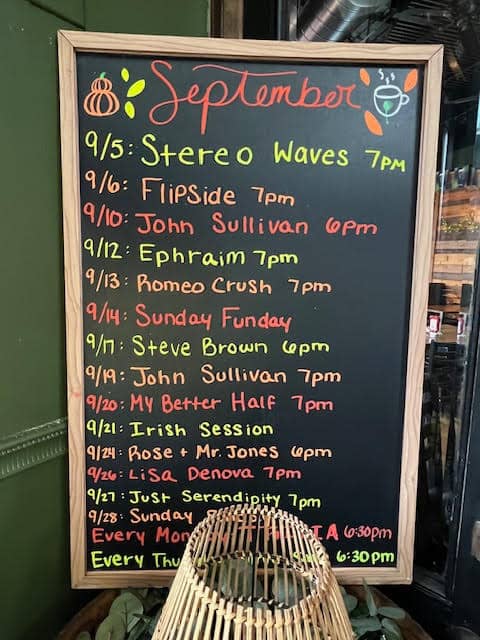 September
9/5: Stereo Waves 7PM
9/6: FlipSide 7pm
9/10: John Sullivan 6pm
9/12: Ephraim 7pm
9/13: Romeo Crush 7pm
9/14: Sunday Funday
9/17: Steve Brown 6pm
9/19: John Sullivan 7pm
9/20: My Better Half 7pm
9/21: Irish Session
9/24: Rose + Mr. Jones 6pm
9/26: Lisa Denova 7pm
9/27: Just Serendipity 7pm
9/28: Sunday
Every IA 6:30pm
Every 6:30 pm